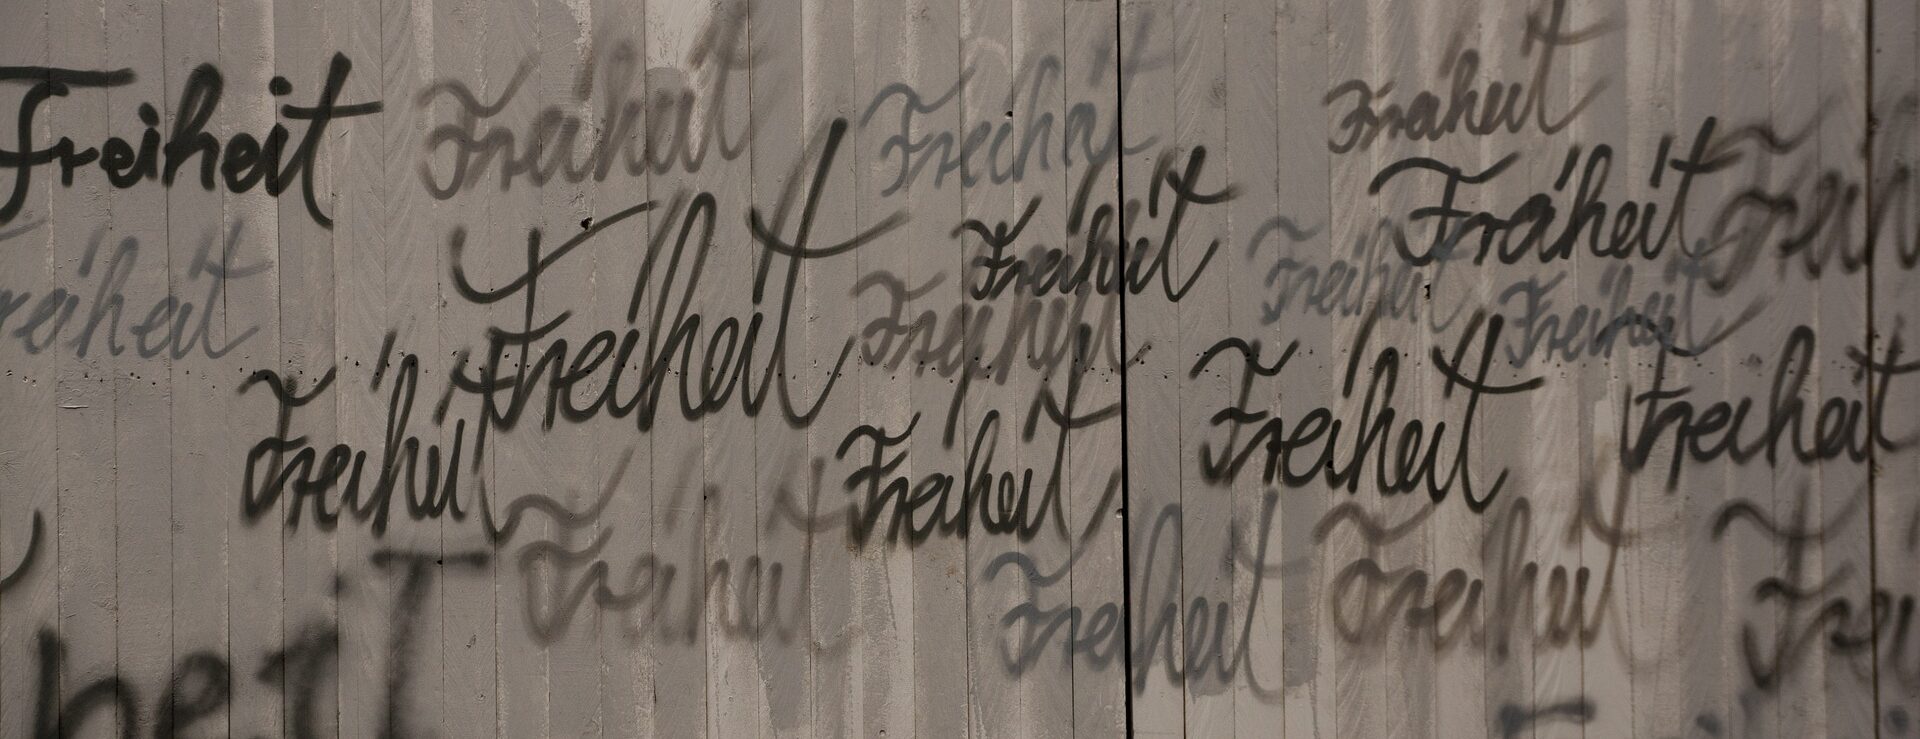 Freiheit
Freiheit
Freiheit
Freiheit
Freiheit
Freiheit
reiheit
Freiheit
Freiheit
Freiheit
Freiheit
Freiheit
Freiheit
Freiheit
Freiheit
Freiheit
Freiheit
Freiheit
Freiheit
Freiheit
heit